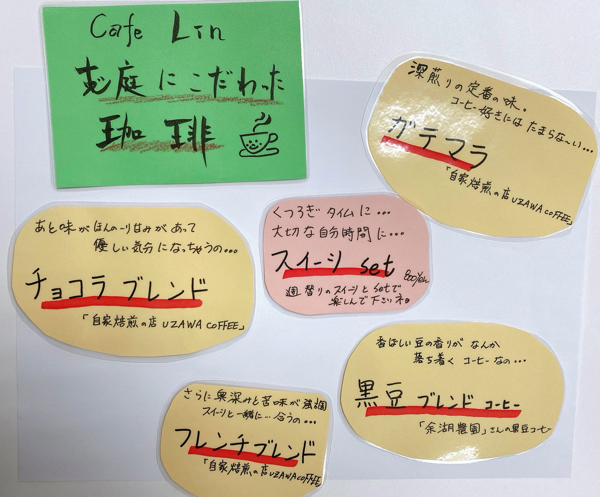 Cafe Lin
む庭にこだわった
珈琲
深煎りの定番の味。
コーヒー好きにはたまらな〜い...
ガテマラ
「自家焙煎の店UZAWA COFFEE」
あと味がほんの〜り甘みがあって
優しい気分になっちゃうの...
チョコラブレンド
「自家焙煎の店UZAWA COFFEE」
くつろぎタイムに...
大切な自分時間に...
スイーツ set
週替りのスイーツとsetで
楽しんで下さいネ。
香ばしい豆の香りがなんか
落ち着くコーヒーなの...
黒豆ブレンドコーヒー
「余湖農園」さんの黒豆コーヒー
さらに奥深みと苦味が強調
スイーツと一緒に...合うの...
フレンチブレンド
「自家焙煎の店UZAWA COFFEE」